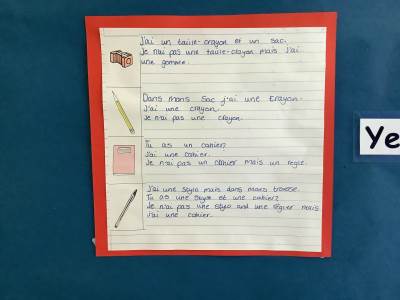 J'ai un taille-crayon et un sac.
Je n'ai pas une taille-crayon mais j'ai
une gomme.
Dans mons sac j'ai une crayon.
J'ai une crayon.
Je n'ai pas une crayon.
Tu as un cahier?
J'ai une cahier.
Je n-ai pas un cahier mais un regle.
J'ai une stylo mais dans mons trousse.
Tu as une stylo et une cahier?
Je n'ai pas une stylo und une régler mais
J'ai une cahier.
Ye